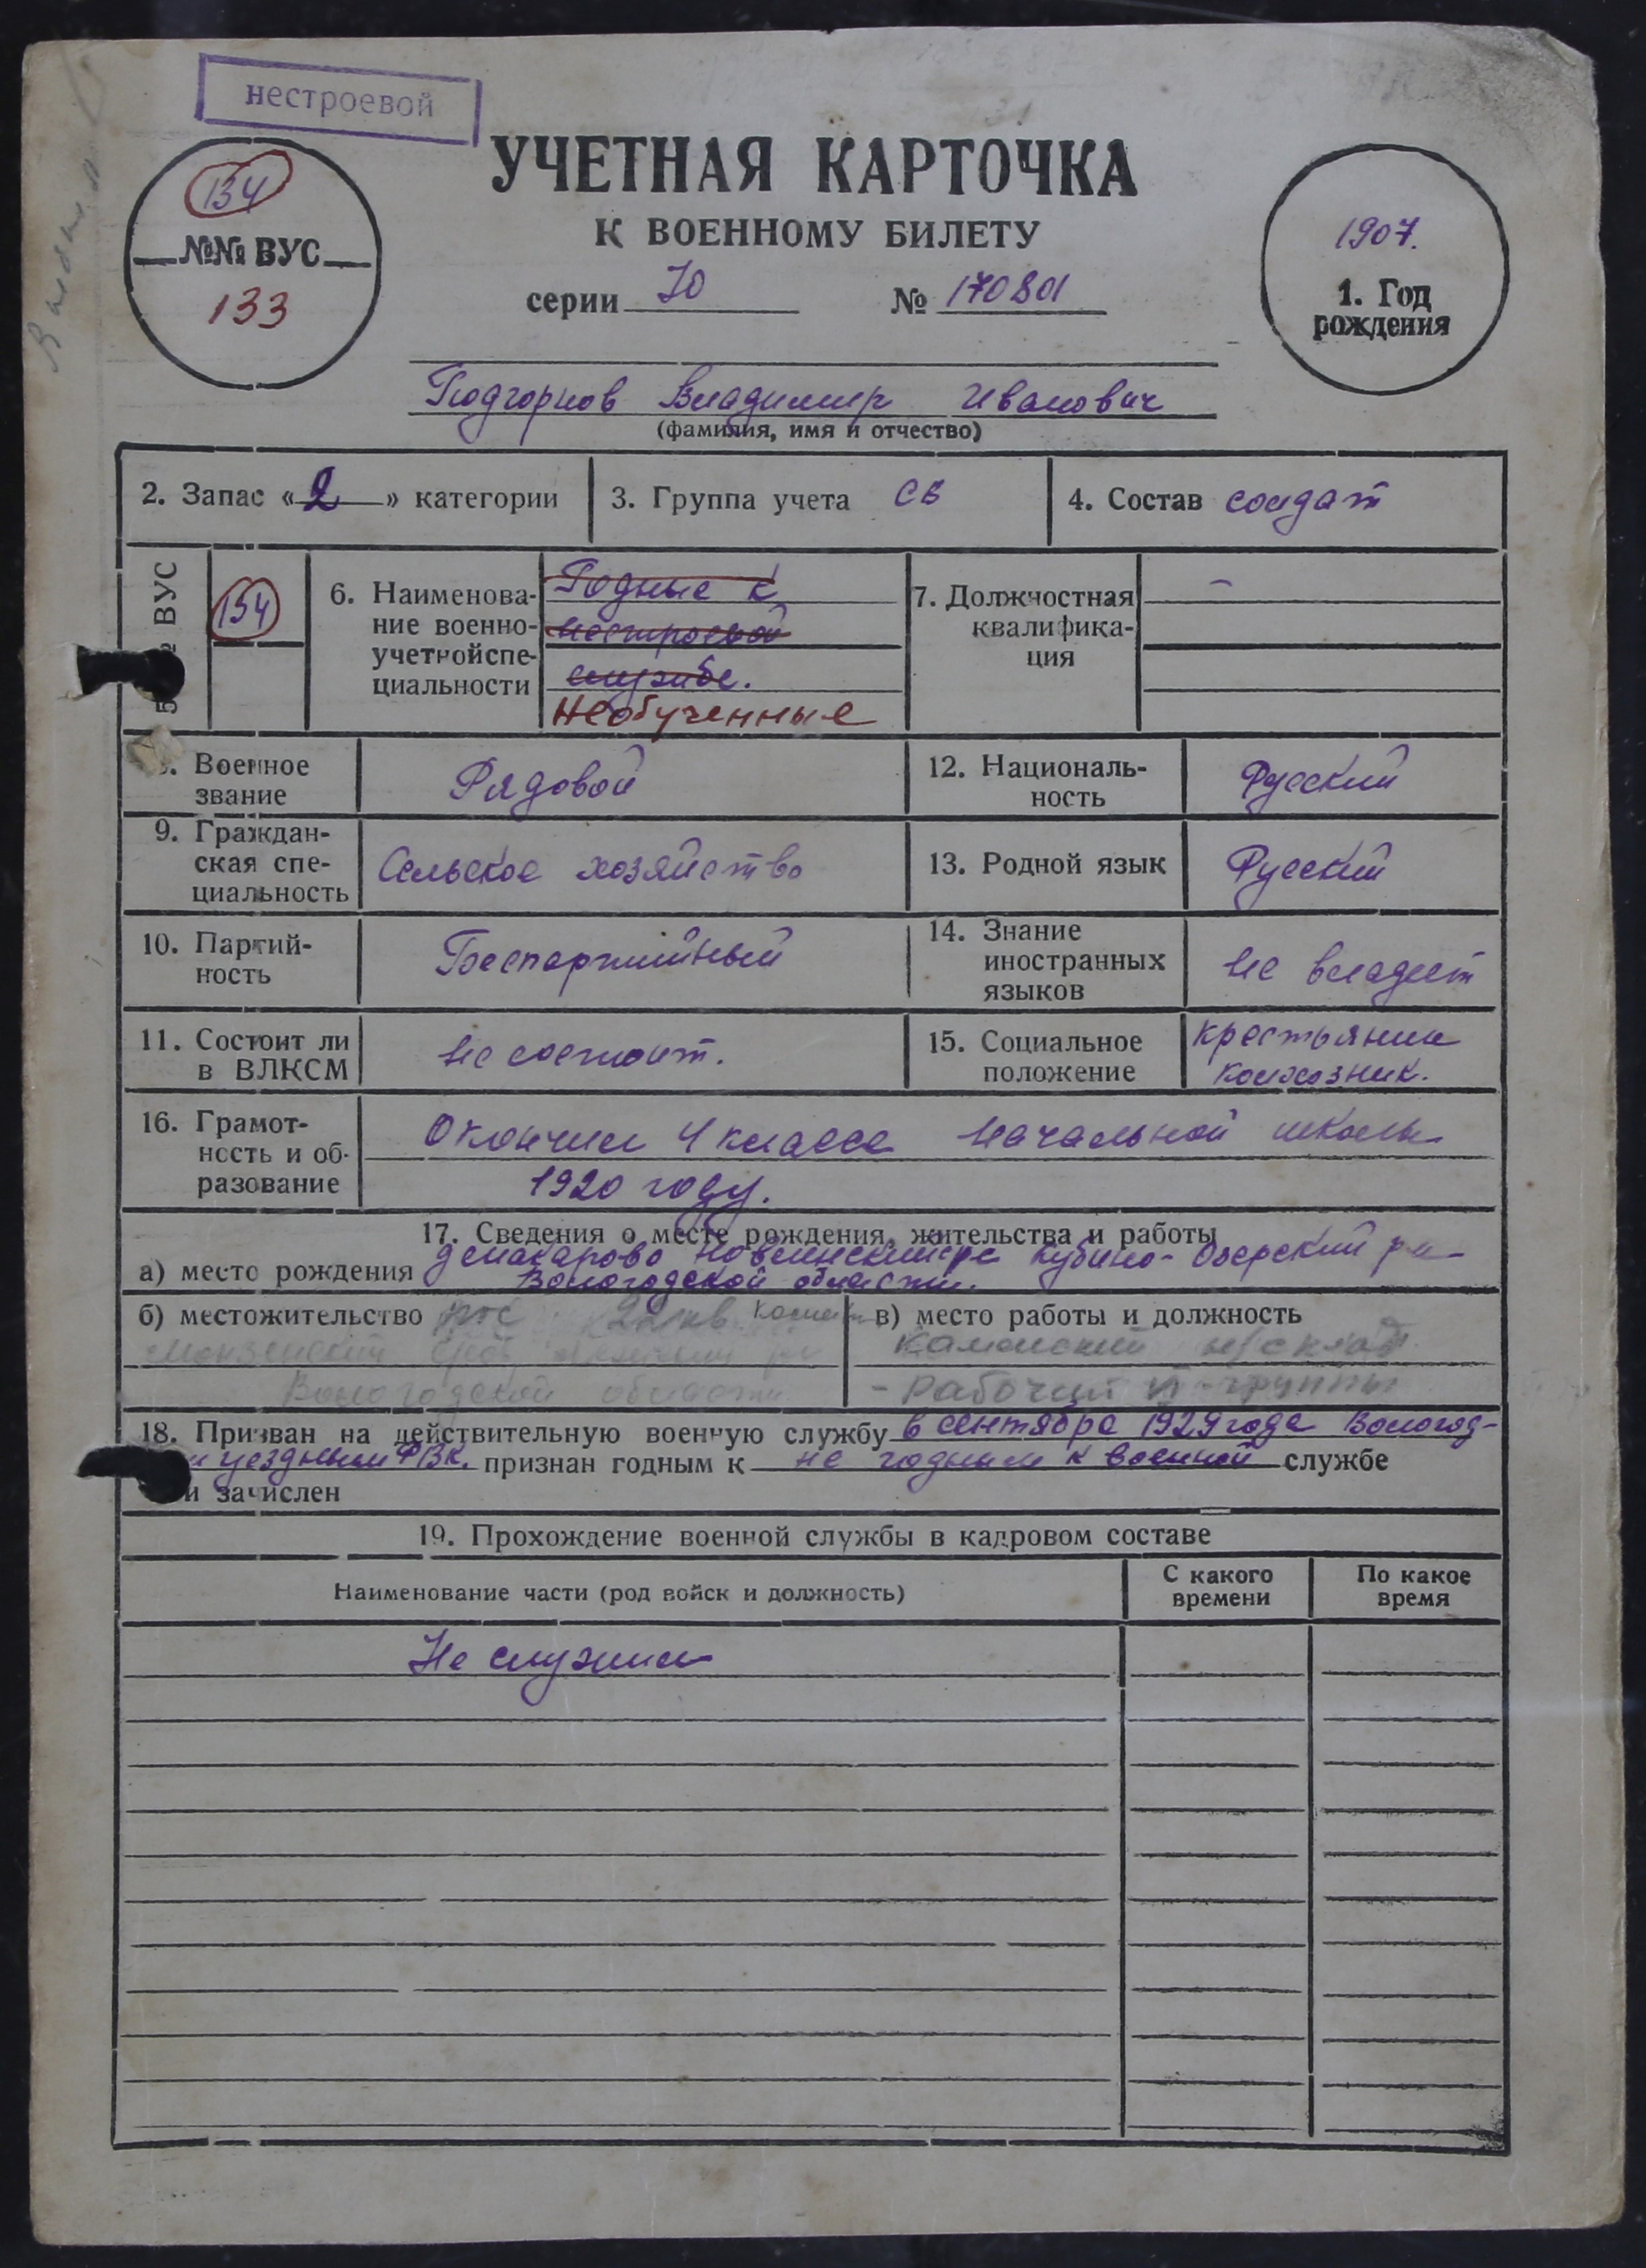 нестроевой
134
№№ ВУС
133
УЧЕТНАЯ КАРТОЧКА
К ВОЕННОМУ БИЛЕТУ
серии Ю № 170801
1907.
1. Год
рождения
Подгорнов Владимир Иванович
(фамилия, имя и отчество)
2. Запас « 2 » категории
3. Группа учета СВ
4. Состав солдат
ВУС
134
6. Наименова-
ние военно-
учетной спе-
циальности
Годные к
нестроевой
службе.
Необученные
7. Должностная
квалифика-
ция
–
Военное
звание
Рядовой
12. Националь-
ность
Русский
9. Граждан-
ская спе-
циальность
Сельское хозяйство
13. Родной язык
Русский
10. Партий-
ность
Беспартийный
14. Знание
иностранных
языков
не владеет
11. Состоит ли
в ВЛКСМ
не состоит.
15. Социальное
положение
крестьянин
колхозник.
16. Грамот-
ность и об-
разование
Окончил 4 класса начальной школы
1920 году.
17. Сведения о месте рождения, жительства и работы
а) место рождения Кубино-Озерский р-н
Вологодской области.
б) местожительство пос 22 кв
Вологодской области
в) место работы и должность
Каменский н/склад
- рабочий
18. Призван на действительную военную службу в сентябре 1929 года Вологод-
уездным РВК. признан годным к не годным к военной службе
и зачислен
19. Прохождение военной службы в кадровом составе
Наименование части (род войск и должность)
С какого
времени
По какое
время
Не служил